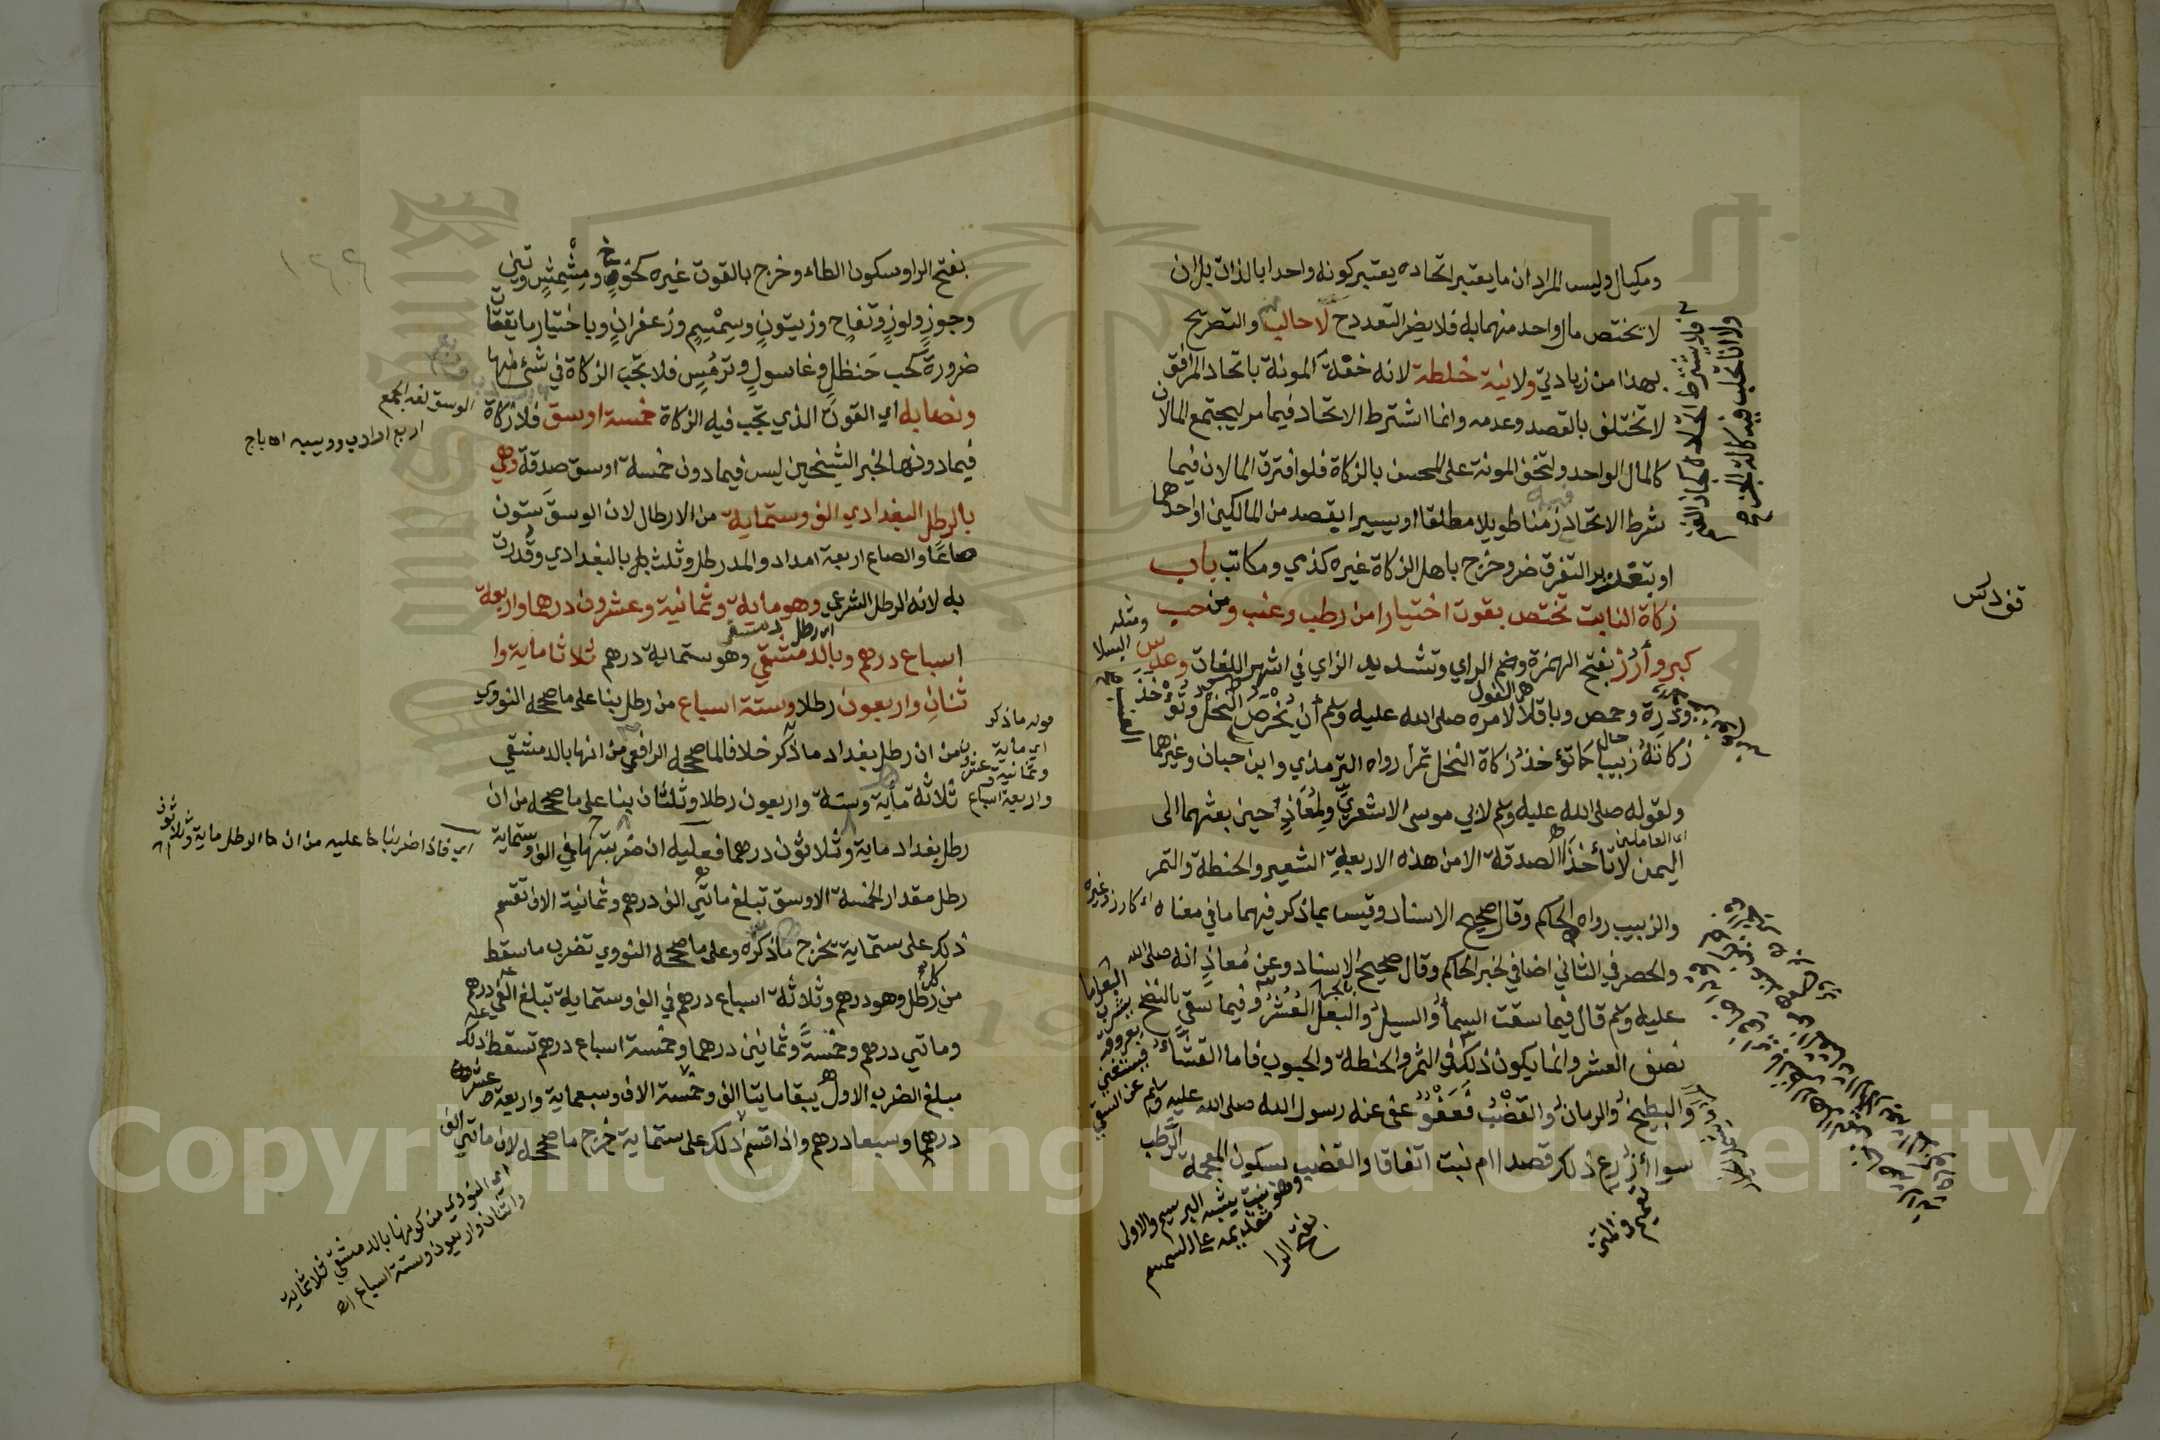 ومكيال وليس المراد ان ما يعتبر اتحاده يعتبر كونه واحدا بالذات بل ان
لا يختص مال واحد منهما به فلا يضر التعدد ح لا حالب والتصريح
بهذا من زيادتي ولا نية خلطة لانه خفة المونة باتحاد المرافق
لا تختلف بالقصد وعدمه وانما اشترط الاتحاد فيما مر ليجتمع المالان
كالمال الواحد ولتخف المونة على المحسن بالزكاة فلو افترق المالان فيما
شرط الاتحاد زمنا طويلا مطلقا او يسيرا بقصد من المالكين او احدهما
او بتقرير التفرق ضر وخرج باهل الزكاة غيره كذمي ومكاتب باب
زكاة النابت تختص بقوت اختيارا من رطب وعنب ومن حب
كبر وأرز بفتح الهمزة وضم الراي وتشديد الزاي في اشهر اللغات وعدس
وذرة وحمص وباقلا لامره صلى الله عليه وسلم أن يخرص النخل وتؤخذ
زكاته زبيبا كما تؤخذ زكاة النخل تمرا رواه الترمذي وابن حبان وغيرهما
ولقوله صلى الله عليه وسلم لابي موسى الاشعري ولمعاذ حين بعثهما الى
اليمن لا تأخذا الصدقة الا من هذه الاربعة الشعير والحنطة والتمر
والزبيب رواه الحاكم وقال صحيح الاسناد وقيس بما ذكر فيهما ما في معناه
والحصر في الثاني اضافي لخبر الحاكم وقال صحيح الاسناد وعن معاذ انه صلى الله
عليه وسلم قال فيما سقت السما والسيل والبعل العشر وفيما سقي بالنضح
نصف العشر وانما يكون ذلك في التمر والحنطة والحبوب فاما القثاء
والبطيخ والرمان والقضب فعفو عفى عنه رسول الله صلى الله عليه وسلم
سوا أزرع ذلك قصدا ام نبت اتفاقا والقضب بسكون المعجمة الرطب
فلا يشترط اتحاده
ولا انا تحلب فيه كآلة الجز ح
ومثله
هو الفول
اي العاملين
اء كارز وغيره
البعل ما
يشرب
بعروقه
فيستغني
عن السقي
وهو نبت يشبه البرسيم والاول
بفتح الرا
تعميم في المتن
بفتح الرا وسكون الطاء وخرج بالقوت غيره كخوخ ومشمش وتين
وجوز ولوز وتفاح وزيتون وسمسم وزعفران وباختيار ما يقتات
ضرورة كحب حنظل وغاسول وترمس فلا تجب الزكاة في شئ منها
ونصابه اي القوت الذي تجب فيه الزكاة خمسة اوسق فلا زكاة
فيما دونها لخبر الشيخين ليس فيما دون خمسة اوسق صدقة وهي
بالرطل البغدادي الف وستماية من الارطال لان الوسق ستون
صاعا والصاع اربعة امداد والمد رطل وثلث رطل بالبغدادي وقدرت
به لانه الرطل الشرعي وهو ماية وثمانية وعشرون درهما واربعة
اسباع درهم وبالدمشقي وهو ستماية درهم ثلاثا ماية وا
ثنان واربعون رطلا وستة اسباع من رطل بنا على ما صححه النووي
من ان رطل بغداد ما ذكر خلافا لما صححه الرافعي من انها بالدمشقي
ثلاثة مأية وستة واربعون رطلا وثلثان بنا على ما صححه من ان
رطل بغداد ماية وثلاثون درهما فعليه ان ضربتها في الف وستماية
رطل مقدار الخمسة الاوسق تبلغ ماتي الف درهم وثمانية الاف تقسم
ذلك على ستماية يخرج ما ذكره وعلى ما صححه النووي تضرب ما سقط
من كل رطل وهو درهم وثلاثة اسباع درهم في الف وستماية تبلغ الفي درهم
وماتي درهم وخمسة وثمانين درهما وخمسة اسباع درهم تسقط ذلك
مبلغ الضرب الاول يبقا مايتا الف وخمسة الاف وسبعماية واربعة عشر
درهما وسبعا درهم واذا قسم ذلك على ستماية خرج ما صححه لان ماتي الف
اي رطل دمشق
الوسق لغة الجمع
اربع ارادب وويبة اه باج
قوله ما ذكر
اي ماية
وثمانية وعشرون
واربعة اسباع
اي فاذا ضربناها عليه من ان الرطل ماية وثلاثون
اي النووي من كونها بالدمشقي ثلاثماية
واثنان واربعون وستة اسباع اه
Copyright © King Saud University